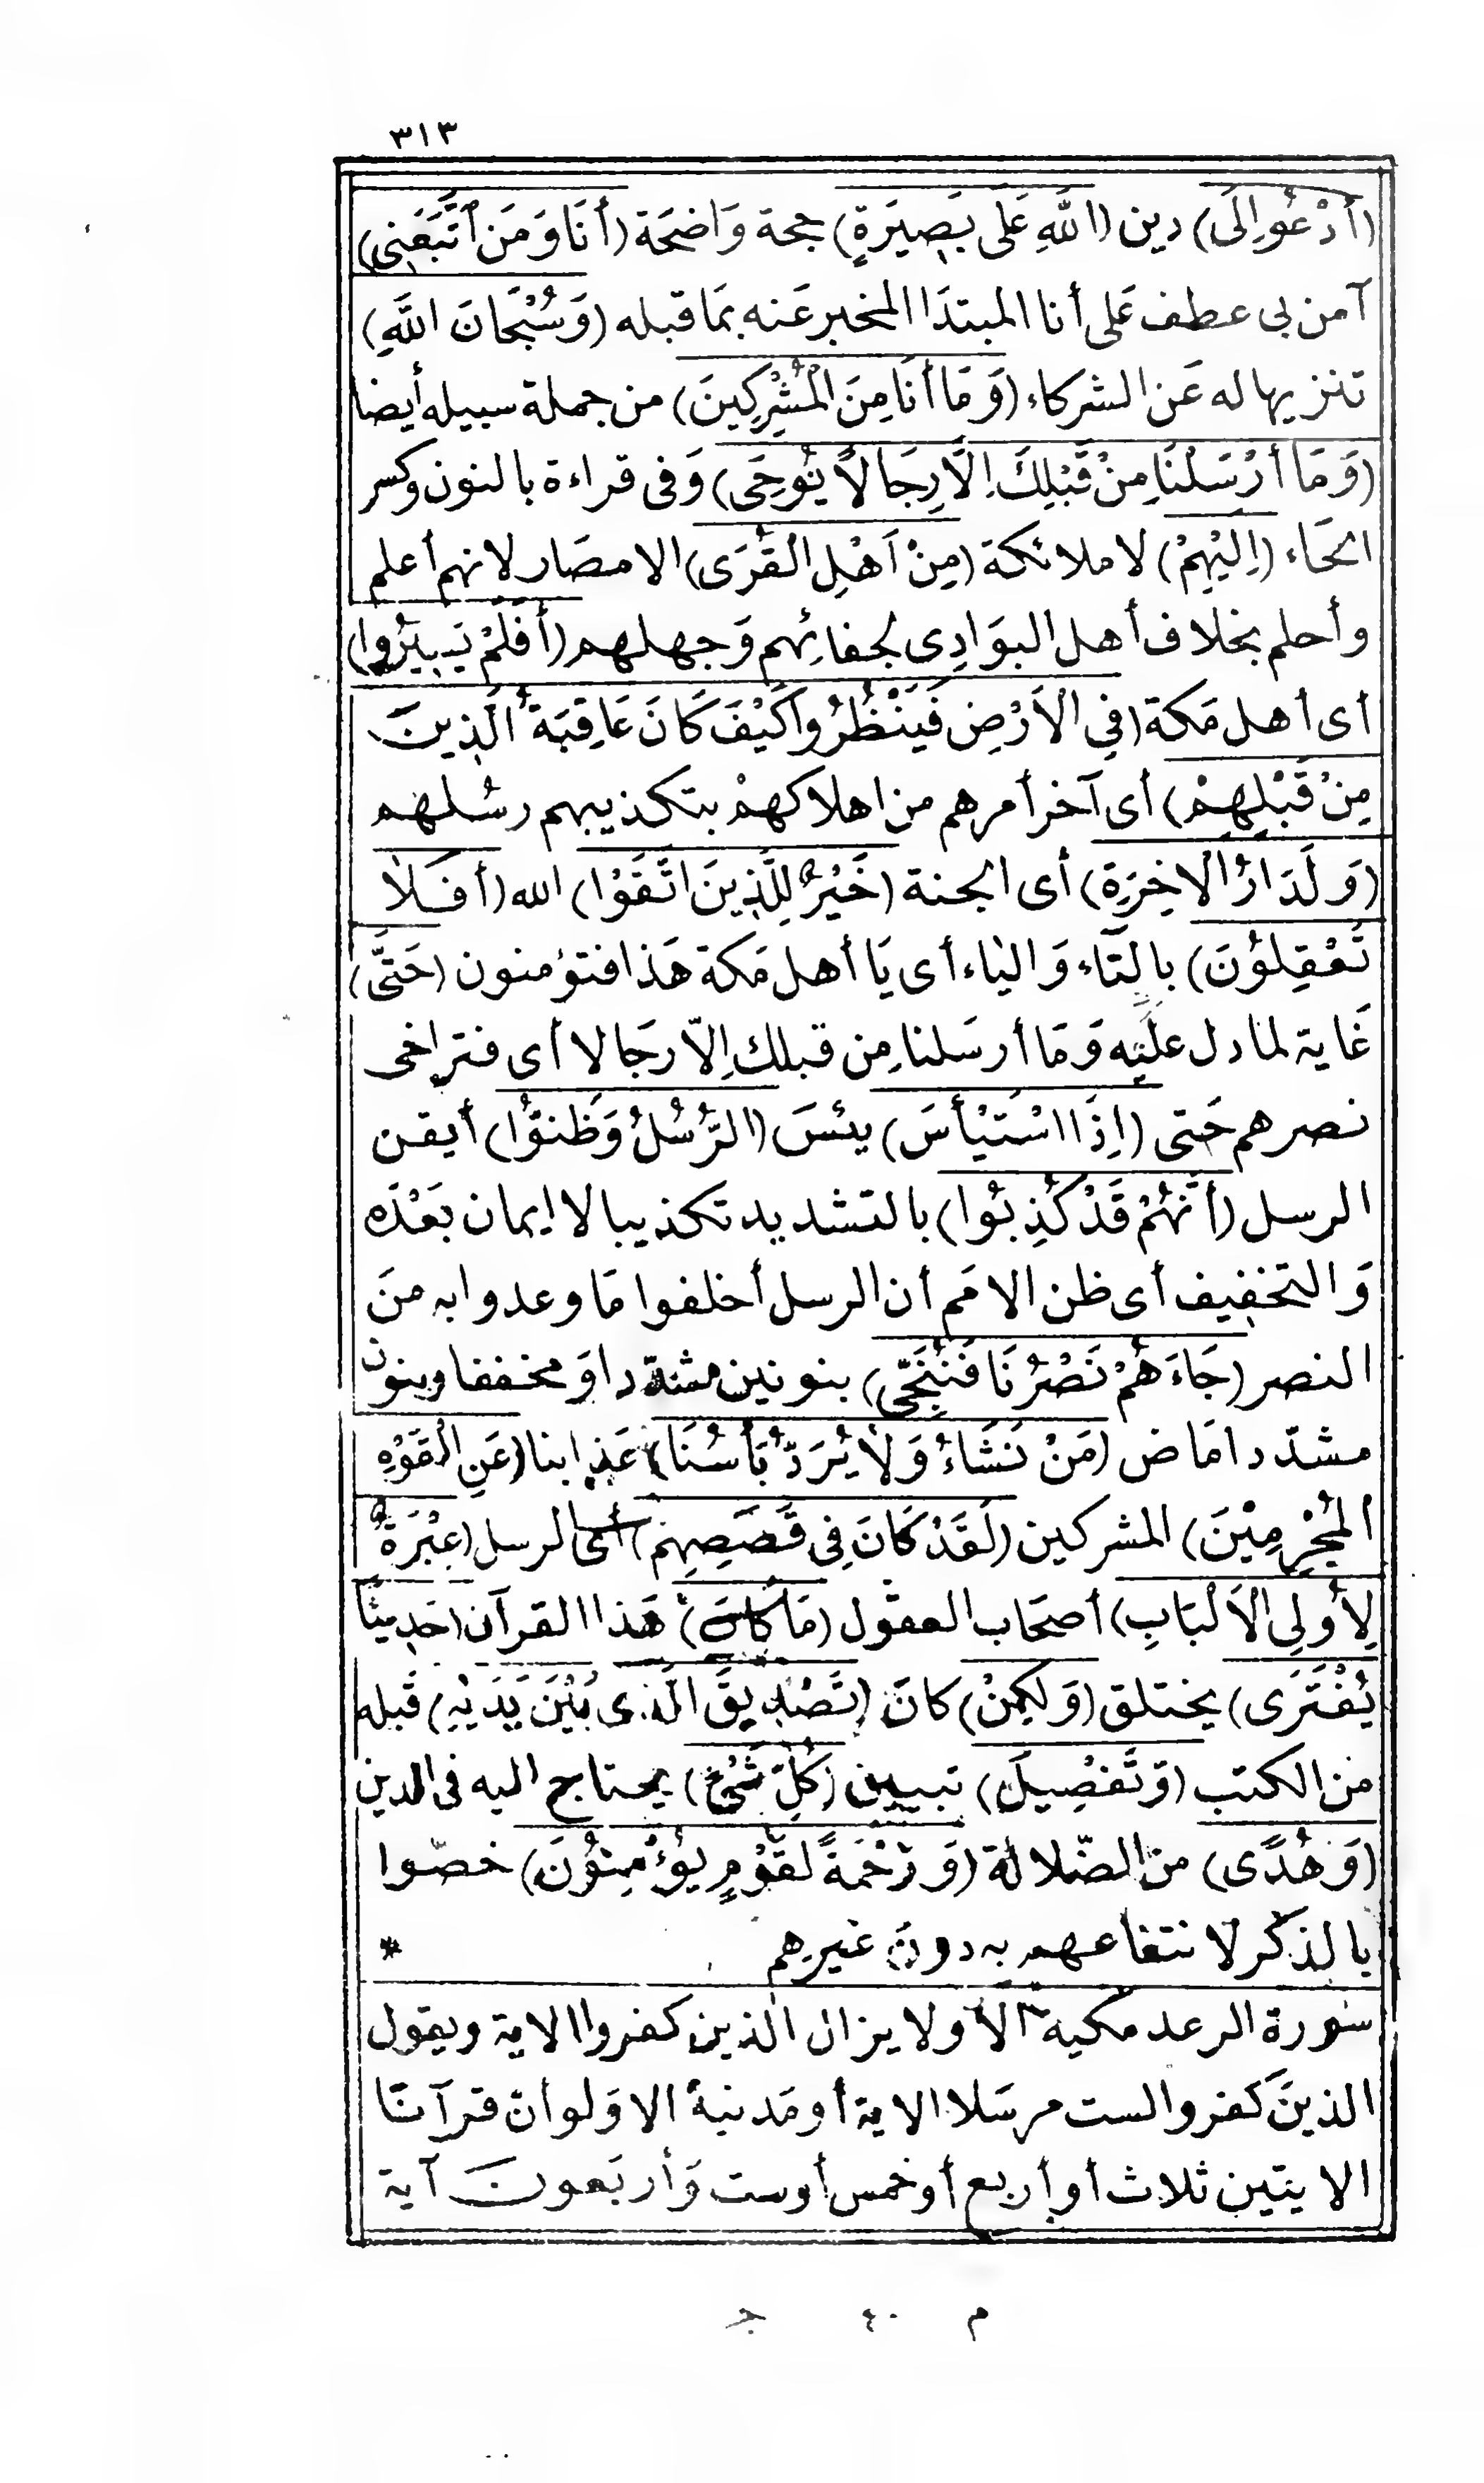 ٣١٣
(أدْعُو إلَى) دين (اللَّهِ عَلَى بَصِيرَةٍ) حجة وَاضحَة (أنَا وَمَن ٱتَّبَعَنِى)
آمن بى عطف عَلى أنا المبتدَا المخبر عَنه بمَا قبله (وَسُبْحَانَ اللَّهِ)
تنزيها له عَن الشركاء (وَمَا أنَا مِنَ الْمُشْرِكِينَ) من جملة سبيله أيضا
(وَمَا أرْسَلْنَا مِنْ قَبْلِكَ إلَّا رِجَالًا يُوحَى) وَفى قراءة بالنون وكسر
الحَاء (إلَيْهِمْ) لا ملائكة (مِنْ أَهْلِ الْقُرَى) الامصَار لانهم أعلم
وأحلم بخلاف أهل البوَادِى لجفائهم وَجهلهم (أفَلَمْ يَسِيرُوا)
أى أهل مَكة (فِي الأَرْضِ فَيَنْظُرُوا كَيْفَ كَانَ عَاقِبَةُ الَّذِينَ
مِنْ قَبْلِهِمْ) أى آخر أمرهم من اهلاكهمْ بتكذيبهم رسُلهم
(وَلَدَارُ الْاخِرَةِ) أى الجنة (خَيْرٌ لِلَّذِينَ اتَّقَوْا) الله (أفَلَا
تَعْقِلُونَ) بالتَاء وَالياء أى يَا أهل مَكة هَذا فتؤمنون (حَتَّى)
غَاية لما دل عليْه وَمَا أرسَلنا مِن قبلك إلّا رجَالا أى فتراخى
نصرهم حَتى (إذَا اسْتَيْأَسَ) يئسَ (الرُّسُلُ وَظَنُّوا) أيقن
الرسل (أنَّهُمْ قَدْ كُذِّبُوا) بالتشديد تكذيبا لا ايمان بَعْدَه
وَالتخفيف أى ظن الامَم أن الرسل أخلفوا مَا وعدوا به منَ
النصر (جَاءَهُمْ نَصْرُنَا فَنُنَجِّى) بنونين مشدّدا وَمخففا وبنون
مشدّدا مَاض (مَنْ نَشَاءُ وَلَا يُرَدُّ بَأْسُنَا) عَذابنا (عَنِ الْقَوْمِ
الْمُجْرِمِيْنَ) المشركين (لَقَدْ كَانَ فِى قَصَصِهِمْ) أى الرسل (عِبْرَةٌ
لِأُولِى الْأَلْبَابِ) أصحَاب العقول (مَا كَانَ) هَذا القرآن (حَدِيثًا
يُفْتَرَى) يختلق (وَلَكِنْ) كانَ (تَصْدِيقَ الَّذِى بَيْنَ يَدَيْهِ) قبله
من الكتب (وَتَفْصِيلَ) تبيين (كُلِّ شَىْءٍ) يحتاج اليه فى الدين
(وَهُدًى) من الضّلالة (وَرَحْمَةً لِقَوْمٍ يُوْمِنُونَ) خصّوا
بالذكر لانتفاعهم به دونَ غيرِهم *
سورة الرعد مكيه الّا ولا يزال الذين كفروا الاية ويقول
الذينَ كفروا لست مرسَلا الاية أو مَدنية الا وَلو أنّ قرآنا
الايتين ثلاث أو أربع أو خمس أوست وَأربَعون آية
م ٤٠ جـ